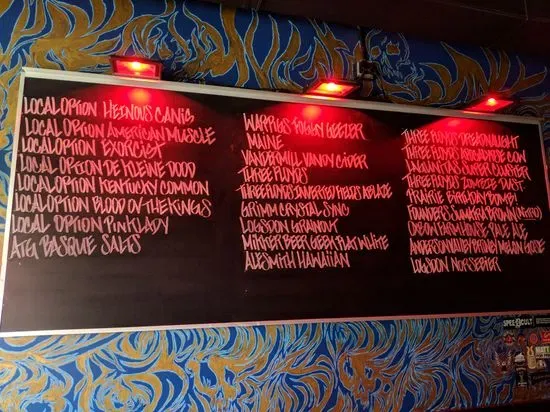 LOCAL OPTION HEINOUS CANIS
LOCAL OPTION AMERICAN MUSCLE
LOCAL OPTION EXORCIST
LOCAL OPTION DE KLEINE DOOD
LOCAL OPTION KENTUCKY COMMON
LOCAL OPTION BLOOD OV THE KINGS
LOCAL OPTION PINK LADY
ATG BASQUE SALTS
GEEZER
MAINE
VANDERMILL CIDER
THREE FLOYDS
THREE FLOYDS INVERTED FIELDS ABLAZE
GRIMM CRYSTAL SYNC
LOGSDON
MIKKELLER BEER GEEK FLAT WHITE
ALESMITH HAWAIIAN
THREE FLOYDS DREADNAUGHT
THREE FLOYDS APOCALYPSE COW
LAGUNITAS SUPER CLUSTER
THREE FLOYDS ZOMBIE DUST
PRAIRIE BIRTHDAY BOMB!
FOUNDERS (NITRO)
OXBOW FARMHOUSE PALE ALE
ANDERSON VALLEY GOSE
LOGSDON